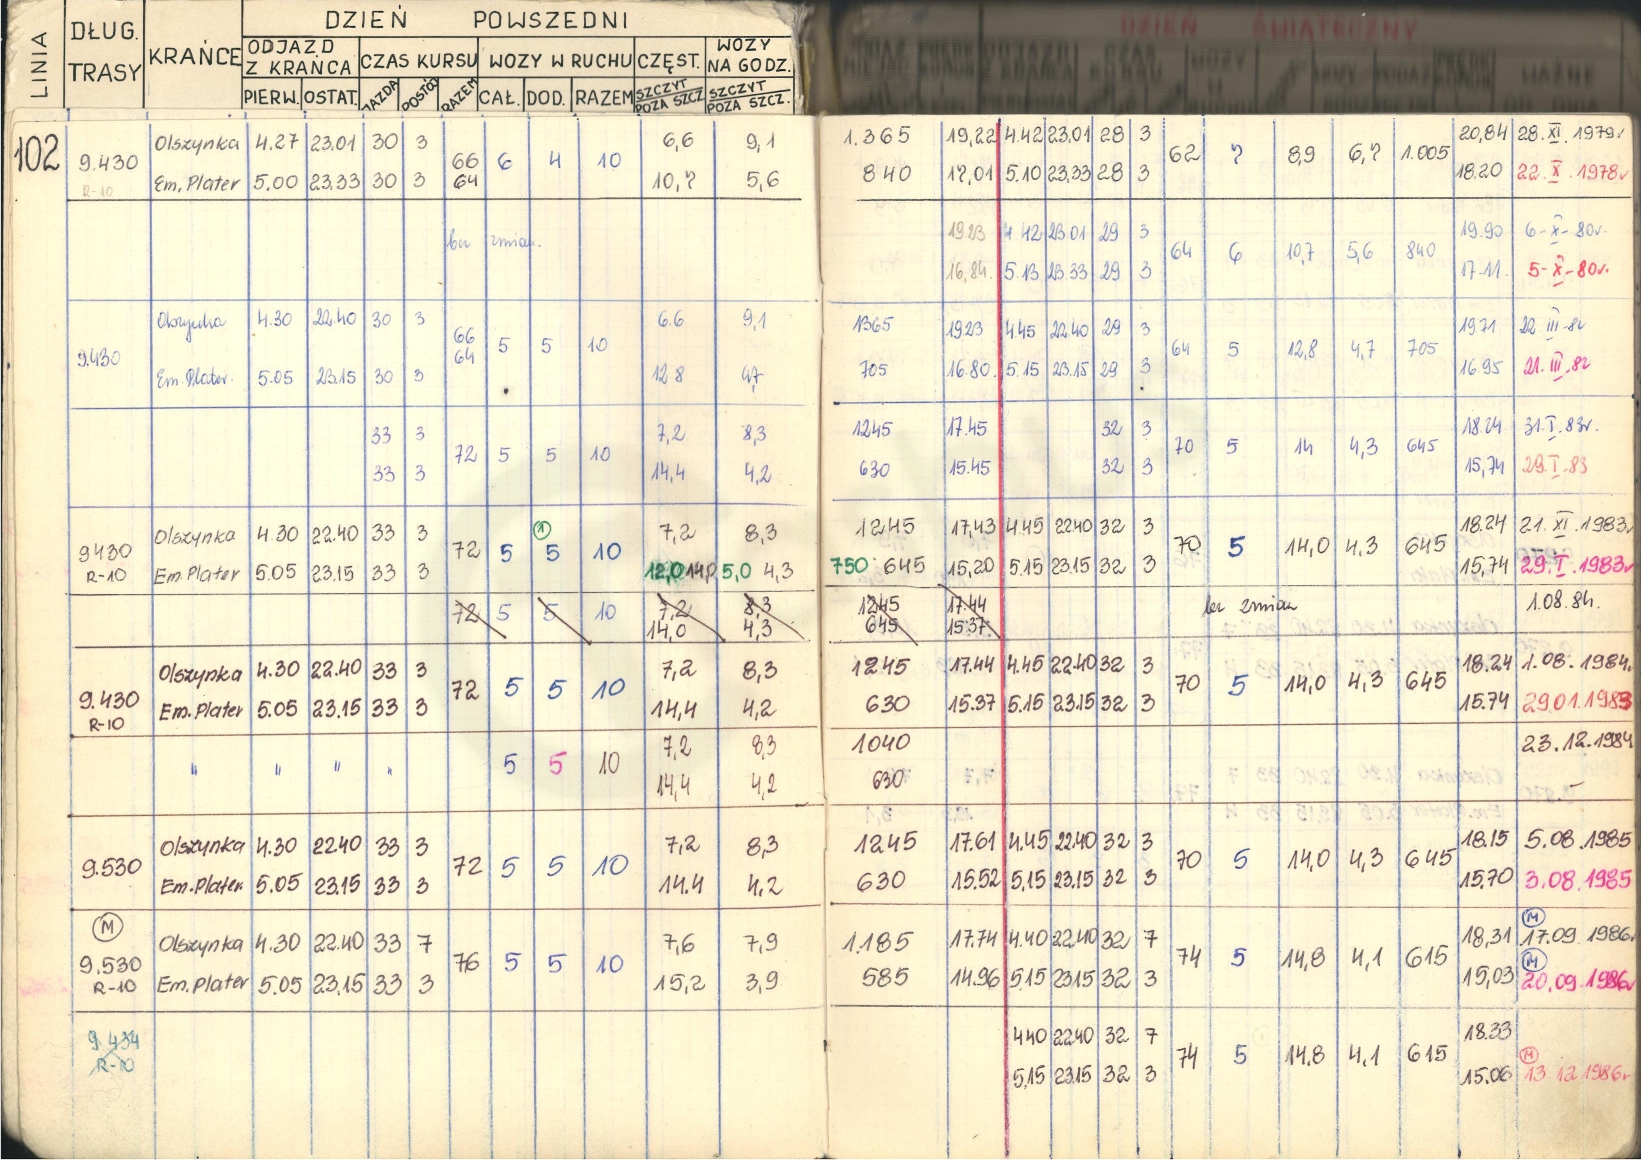 LINIA DŁUG. TRASY KRAŃCE DZIEŃ POWSZEDNI DZIEŃ ŚWIĄTECZNY
ODJAZD Z KRAŃCA CZAS KURSU WOZY W RUCHU CZĘST. WOZY NA GODZ.
PIERW. OSTAT. JAZDA POSTÓJ RAZEM CAŁ. DOD. RAZEM SZCZYT POZA SZCZ. SZCZYT POZA SZCZ.
102 9.430 R-10
Olszynka 4.27 23.01 30 3 66 6 4 10 6,6 9,1 1.365 19,22 4.42 23,01 28 3 62 7 8,9 6,7 1.005 20,84 28.XI.1979r
Em. Plater 5.00 23,33 30 3 64 10,7 5,6 840 17,01 5.10 23,33 28 3 18.20 22.X.1978r
bez zmian. 19.23 4 42 23.01 29 3 64 6 10,7 5,6 840 19.90 6-X-80r.
16,84. 5.13 23 33 29 3 17-11. 5-X-80r.
9.430
Olszynka 4.30 22.40 30 3 66 64 5 5 10 6.6 9,1 1365 19.23 4.45 22.40 29 3 64 5 12,8 4,7 705 1971 22 III-82
Em. Plater. 5.05 23.15 30 3 12 8 4,7 705 16.80 5.15 23.15 29 3 16.95 21.III.82
33 3 72 5 5 10 7,2 8,3 1245 17.45 32 3 70 5 14 4,3 645 18.24 31.I.83r.
33 3 14,4 4,2 630 15.45 32 3 15,74 29.I.83
9430 R-10
Olszynka 4.30 22.40 33 3 72 5 1 5 10 7,2 8,3 1245 17,43 4.45 2240 32 3 70 5 14,0 4.3 645 18.24 21.XI.1983r
Em. Plater 5.05 23.15 33 3 12,0 14,0 5,0 4,3 750 645 15,20 5.15 23.15 32 3 15,74 29.I.1983r
72 5 5 10 7,2 8,3 1245 17.44 bez zmian 1.08.84.
14,0 4,3 645 15.37
9.430 R-10
Olszynka 4.30 22.40 33 3 72 5 5 10 7,2 8,3 1245 17.44 4.45 22.40 32 3 70 5 14,0 4,3 645 18.24 1.08.1984.
Em. Plater 5.05 23.15 33 3 14,4 4,2 630 15.37 5.15 23.15 32 3 15.74 29.01.1983
" " " " 5 5 10 7,2 8,3 1040 23.12.1984
14,4 4,2 630
9.530
Olszynka 4.30 2240 33 3 72 5 5 10 7,2 8,3 1245 17.61 4.45 22.40 32 3 70 5 14,0 4,3 645 18.15 5.08.1985
Em. Plater 5.05 23.15 33 3 14.4 4,2 630 15.52 5,15 23,15 32 3 15,70 3.08.1985
M 9.530 R-10
Olszynka 4.30 22.40 33 7 76 5 5 10 7,6 7,9 1.185 17.74 4.40 22,40 32 7 74 5 14,8 4,1 615 18,31 M 17.09.1986r
Em. Plater 5.05 23,15 33 3 15,2 3,9 585 14.96 5,15 23.15 32 3 15,03 M 20.09.1986r
9.434 R-10
440 22.40 32 7 74 5 14.8 4,1 615 18.33
5,15 23.15 32 3 15.06 M 13.12.1986r